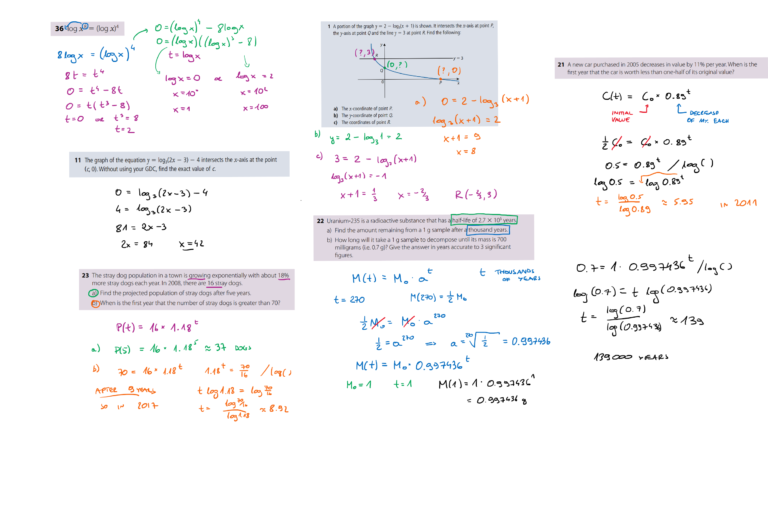 36 8log x = (log x)⁴
8 log x = (log x)⁴
8t = t⁴
0 = t⁴ - 8t
0 = t(t³ - 8)
t = 0 or t³ = 8
t = 2
0 = (log x)⁴ - 8 log x
0 = (log x)((log x)³ - 8)
t = log x
log x = 0 or log x = 2
x = 10⁰ x = 10²
x = 1 x = 100
11 The graph of the equation y = log₃(2x − 3) − 4 intersects the x-axis at the point
(c, 0). Without using your GDC, find the exact value of c.
0 = log₃(2x-3) - 4
4 = log₃(2x-3)
81 = 2x - 3
2x = 84 x = 42
23 The stray dog population in a town is growing exponentially with about 18%
more stray dogs each year. In 2008, there are 16 stray dogs.
a) Find the projected population of stray dogs after five years.
b) When is the first year that the number of stray dogs is greater than 70?
P(t) = 16 · 1.18ᵗ
a) P(5) = 16 · 1.18⁵ ≈ 37 DOGS
b) 70 = 16 · 1.18ᵗ 1.18ᵗ = 70/16 /log( )
AFTER 9 YEARS t log 1.18 = log 70/16
SO IN 2017 t = log 70/16 / log 1.18 ≈ 8.92
1 A portion of the graph y = 2 − log₃(x + 1) is shown. It intersects the x-axis at point P,
the y-axis at point Q and the line y = 3 at point R. Find the following:
(?,3)
y = 3
(0,?)
(?,0)
a) The x-coordinate of point P.
b) The y-coordinate of point Q.
c) The coordinates of point R.
a) 0 = 2 - log₃(x+1)
log₃(x+1) = 2
x + 1 = 9
x = 8
b) y = 2 - log₃ 1 = 2
c) 3 = 2 - log₃(x+1)
log₃(x+1) = -1
x + 1 = 1/3 x = -2/3 R(-2/3, 3)
22 Uranium-235 is a radioactive substance that has a half-life of 2.7 × 10⁵ years.
a) Find the amount remaining from a 1 g sample after a thousand years.
b) How long will it take a 1 g sample to decompose until its mass is 700
milligrams (i.e. 0.7 g)? Give the answer in years accurate to 3 significant
figures.
M(t) = M₀ · aᵗ t THOUSANDS OF YEARS
t = 270 M(270) = ½ M₀
½ M₀ = M₀ · a²⁷⁰
½ = a²⁷⁰ ⇒ a = ²⁷⁰√½ = 0.997436
M(t) = M₀ · 0.997436ᵗ
M₀ = 1 t = 1 M(1) = 1 · 0.997436¹
= 0.997436 g
21 A new car purchased in 2005 decreases in value by 11% per year. When is the
first year that the car is worth less than one-half of its original value?
C(t) = C₀ × 0.89ᵗ
INITIAL VALUE
½ C₀ = C₀ × 0.89ᵗ
0.5 = 0.89ᵗ / log( )
log 0.5 = log 0.89ᵗ
t = log 0.5 / log 0.89 ≈ 5.95 in 2011
0.7 = 1 · 0.997436ᵗ / log( )
log(0.7) = t log(0.997436)
t = log(0.7) / log(0.997436) ≈ 139
139 000 YEARS